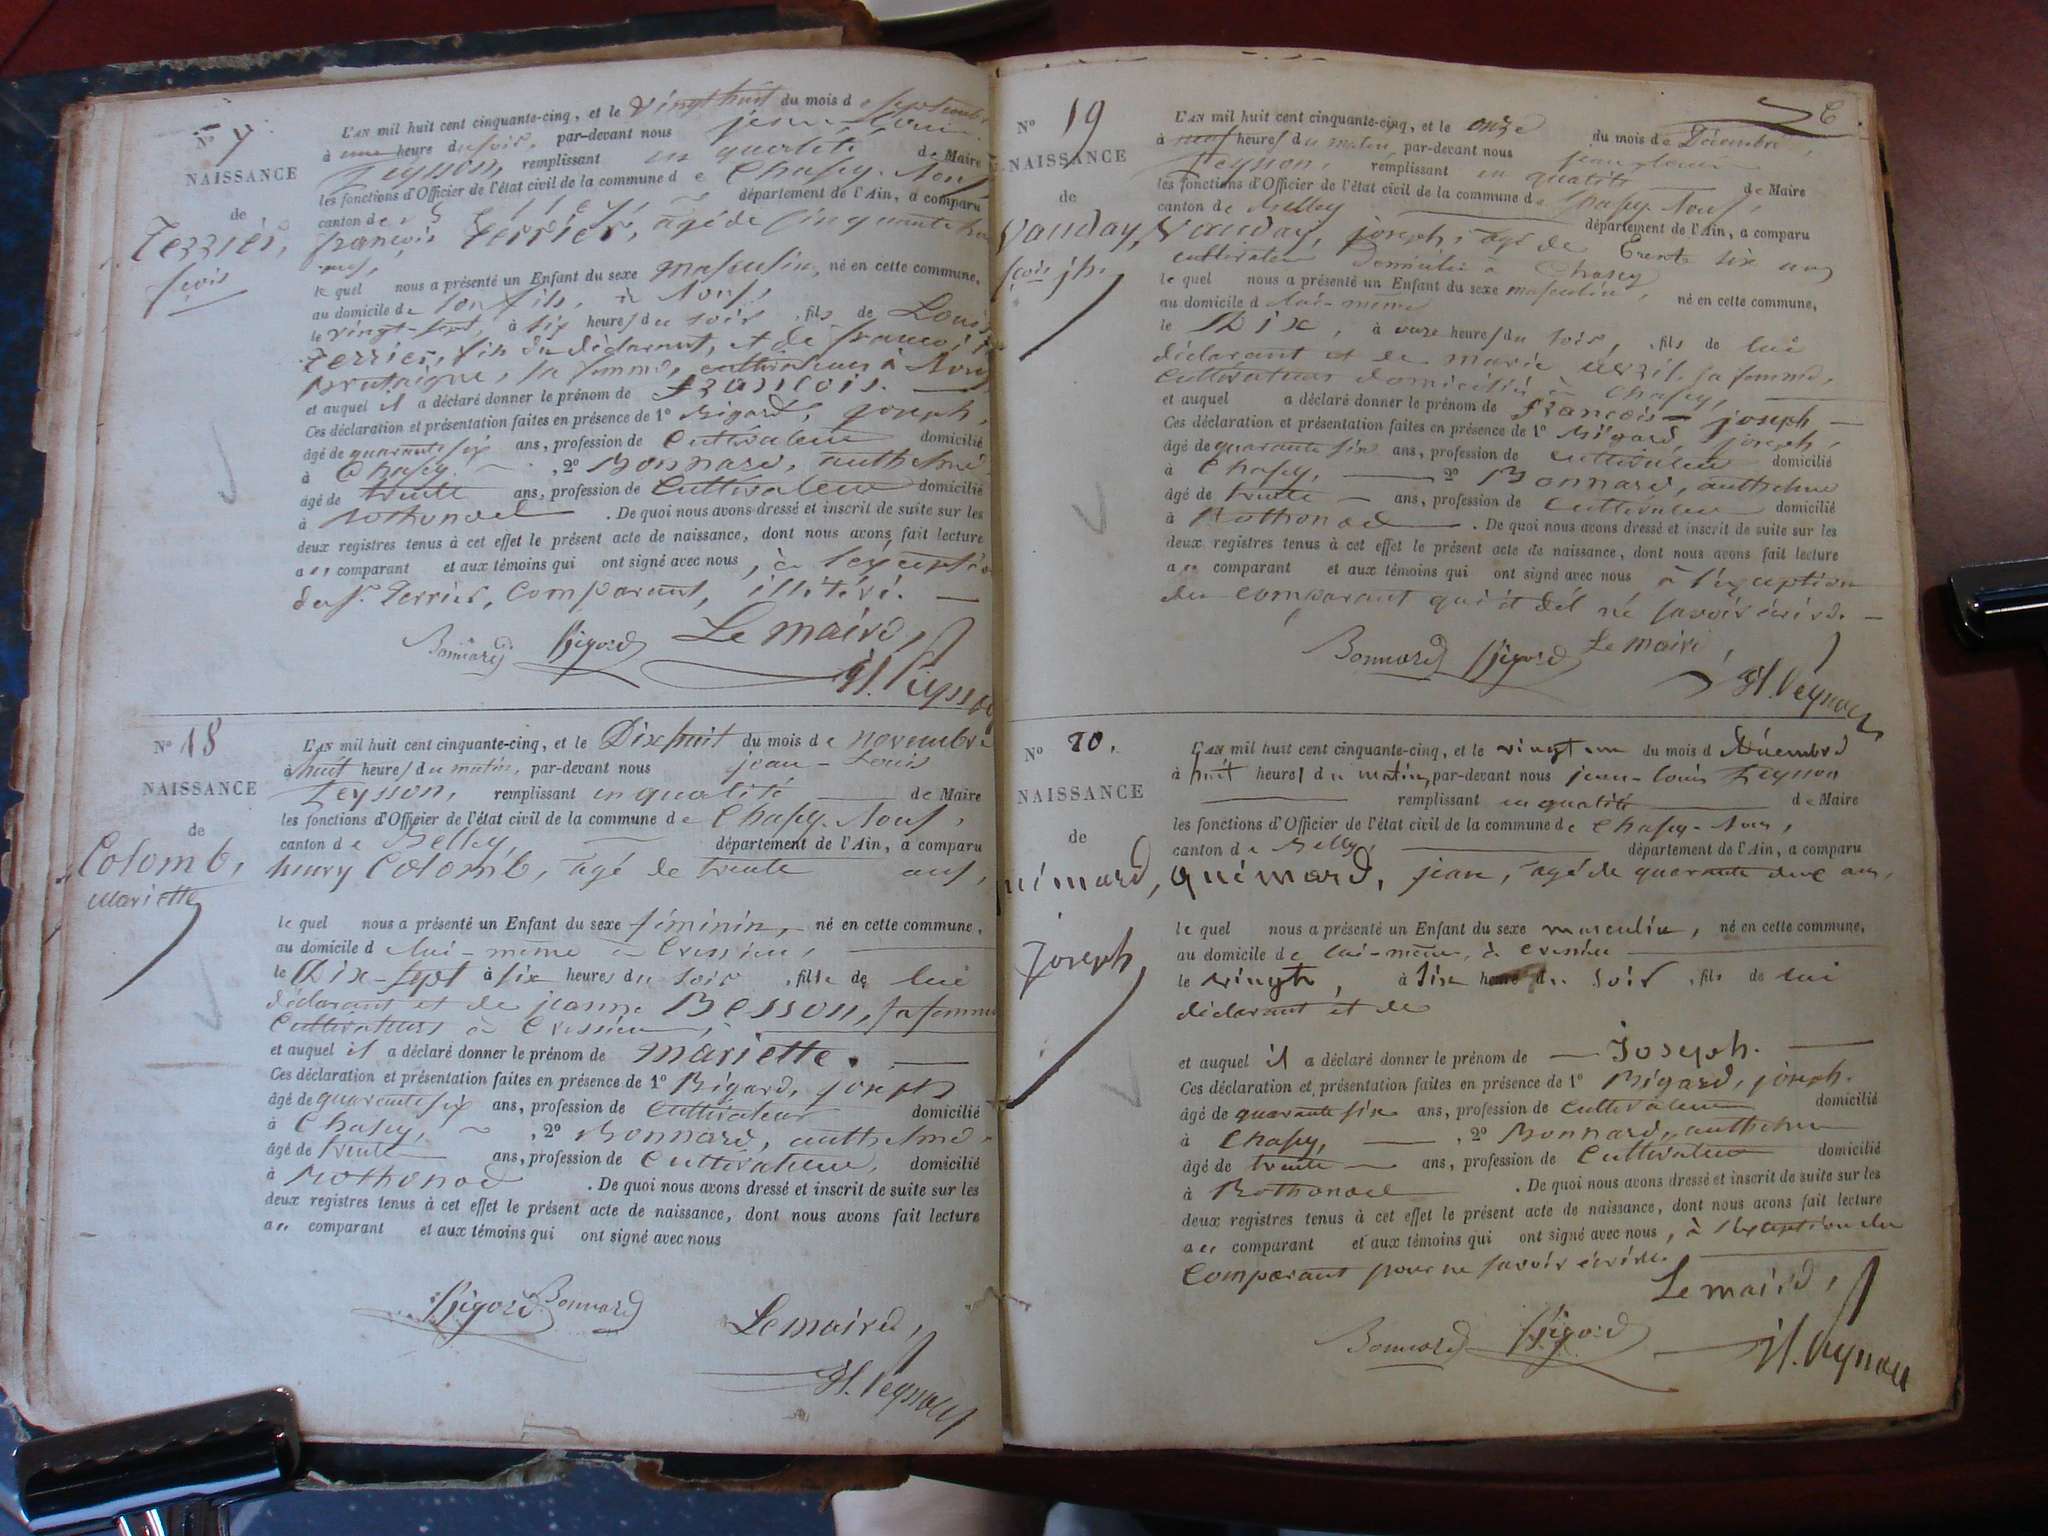 N° 7
NAISSANCE
de
Terrier,
fçois
L'AN mil huit cent cinquante-cinq, et le vingt huit du mois de septembre
à une heure du soir, par-devant nous jean-Louis
Peysson, remplissant en qualité de Maire
les fonctions d'Officier de l'état civil de la commune de Chasey-Nous
canton de département de l'Ain, a comparu
françois Terrier, âgé de cinquante
le quel nous a présenté un Enfant du sexe masculin, né en cette commune,
au domicile de son fils, à Nous,
le vingt-sept, à six heures du soir, fils de Louis
Terrier, fils du déclarant, et de
sa femme, cultivateurs à Nous
et auquel il a déclaré donner le prénom de François.
Ces déclaration et présentation faites en présence de 1° Bigard, joseph,
âgé de quarante six ans, profession de Cultivateur domicilié
à Chasey , 2° Bonnard, anthelme
âgé de trente ans, profession de Cultivateur domicilié
à Rothonod . De quoi nous avons dressé et inscrit de suite sur les
deux registres tenus à cet effet le présent acte de naissance, dont nous avons fait lecture
au comparant et aux témoins qui ont signé avec nous, à l'exception
du sr. Terrier, Comparant, illitéré.
Bonnard Bigard Le maire,
Jl. Peysson
N° 18
NAISSANCE
de
Colomb,
Mariette
L'AN mil huit cent cinquante-cinq, et le Dix huit du mois de novembre
à huit heures du matin, par-devant nous jean-Louis
Peysson, remplissant en qualité de Maire
les fonctions d'Officier de l'état civil de la commune de Chasey-Nous,
canton de Belley, département de l'Ain, a comparu
henry Colomb, âgé de trente ans,
le quel nous a présenté un Enfant du sexe féminin, né en cette commune,
au domicile de lui-même à Cressieu,
le Dix-sept à six heures du soir, fille de lui
déclarant et de jeanne Besson, sa femme
Cultivateurs à Cressieu,
et auquel il a déclaré donner le prénom de mariette.
Ces déclaration et présentation faites en présence de 1° Bigard, joseph
âgé de quarante six ans, profession de Cultivateur domicilié
à Chasey, , 2° Bonnard, anthelme
âgé de trente ans, profession de Cultivateur, domicilié
à Rothonod . De quoi nous avons dressé et inscrit de suite sur les
deux registres tenus à cet effet le présent acte de naissance, dont nous avons fait lecture
au comparant et aux témoins qui ont signé avec nous
Bigard Bonnard Le maire,
Jl. Peysson
N° 19
NAISSANCE
de
Vauday,
fçois jh.
L'AN mil huit cent cinquante-cinq, et le onze du mois de Décembre,
à neuf heures du matin, par-devant nous jean-louis
Peysson, remplissant en qualité de Maire
les fonctions d'Officier de l'état civil de la commune de Chasey-Nous,
canton de Belley département de l'Ain, a comparu
Vauday, joseph, âgé de Trente six ans
cultivateur domicilié à Chasey
le quel nous a présenté un Enfant du sexe masculin, né en cette commune,
au domicile de lui-même
le Dix, à onze heures du soir, fils de lui
déclarant et de marie sa femme,
Cultivateurs domiciliés à Chasey,
et auquel a déclaré donner le prénom de François-joseph
Ces déclaration et présentation faites en présence de 1° Bigard, joseph,
âgé de quarante six ans, profession de cultivateur domicilié
à Chasey, 2° Bonnard, anthelme
âgé de trente ans, profession de Cultivateur domicilié
à Rothonod . De quoi nous avons dressé et inscrit de suite sur les
deux registres tenus à cet effet le présent acte de naissance, dont nous avons fait lecture
au comparant et aux témoins qui ont signé avec nous à l'exception
du comparant qui a dit ne savoir écrire.
Bonnard Bigard Le maire,
Jl. Peysson
N° 20.
NAISSANCE
de
Joseph
L'AN mil huit cent cinquante-cinq, et le vingt un du mois d Décembre
à huit heures du matin, par-devant nous jean-louis Peysson
remplissant en qualité de Maire
les fonctions d'Officier de l'état civil de la commune de Chasey-Nous,
canton de Belley, département de l'Ain, a comparu
Quimard, jean, âgé de quarante deux ans,
le quel nous a présenté un Enfant du sexe masculin, né en cette commune,
au domicile de lui-même, à Cressieu
le vingt, à six heures du soir, fils de lui
déclarant et de
et auquel il a déclaré donner le prénom de Joseph.
Ces déclaration et présentation faites en présence de 1° Bigard, joseph.
âgé de quarante six ans, profession de Cultivateur domicilié
à Chasey, , 2° Bonnard, anthelme
âgé de trente ans, profession de Cultivateur domicilié
à Rothonod . De quoi nous avons dressé et inscrit de suite sur les
deux registres tenus à cet effet le présent acte de naissance, dont nous avons fait lecture
au comparant et aux témoins qui ont signé avec nous, à l'exception du
Comparant pour ne savoir écrire.
Le maire,
Bonnard Bigard Jl. Peysson